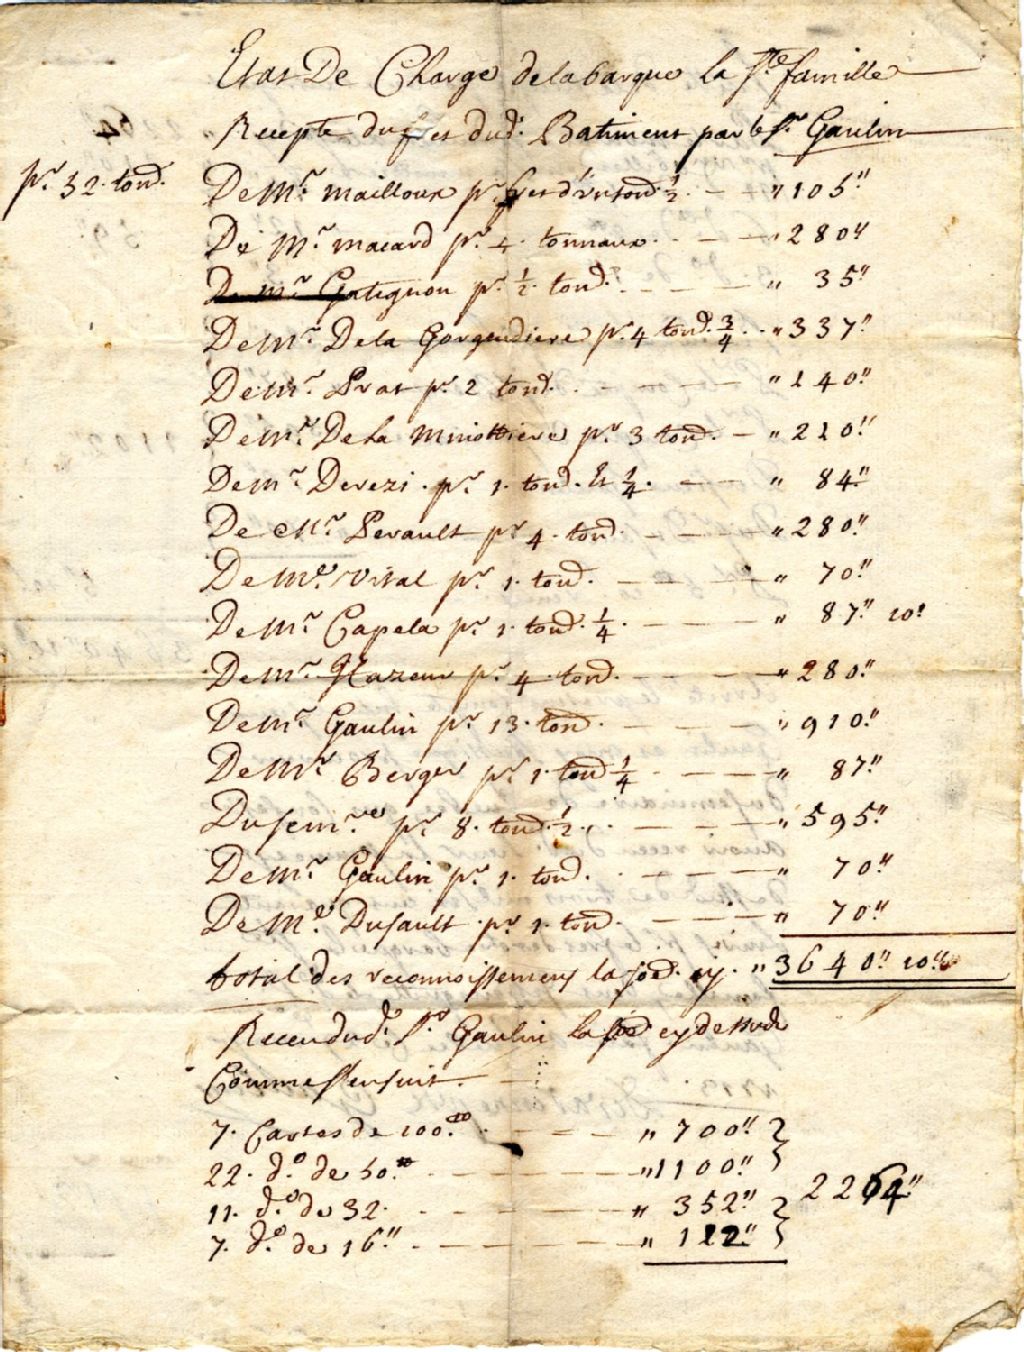 Etat De Charge de la barque la Ste famille
Recepte du fret dud. Batiment par le Sr. Gaulin
pr. 32. tond.
De Mr. mailloux pr. fret d'un tond. 1/2. — — " 105"
De Mr. macard pr. 4. tonnaux. — — — " 280"
De mr. Gatignon pr. 1/2. tond. — — — " 35"
De Mr. De la Gorgendiere pr. 4 tond. 3/4. . " 337"
De Mr. Prat pr. 2 tond. . — — — — " 140"
De Mr. De la Miniottiere pr. 3 tond. — " 210"
De mr. Derezi. pr. 1. tond. et 1/4. — — " 84"
De Mr. Perault pr. 4. tond. — — — " 280"
De Me. Vital pr. 1. tond. — — — — " 70"
De Mr. Capela pr. 1. tond. 1/4. — — — " 87" 10s
De Mr. Hazeur pr. 4. tond. — — — " 280"
De Mr. Gaulin pr. 13. tond. — — — " 910"
De Mr. Berger pr. 1. tond 1/4. — — — " 87"
Du semre. pr. 8. tond. 1/2. . — — — " 595"
De Mr. Gaulin pr. 1. tond. . — — — " 70"
De Me. Dufault pr. 1. tond. — — — " 70"
total des reconnoissemens la som. cy. " 3640" 10s
Receu dud. Sr. Gaulin la
Comme s'ensuit. — :
7. Cartes de 100" . — — — " 700"
22. do. de 50" . — — — — "1100"
11. do. de 32. . — — — — " 352"
7. do. de 16" . — — — — " 112"
2264"